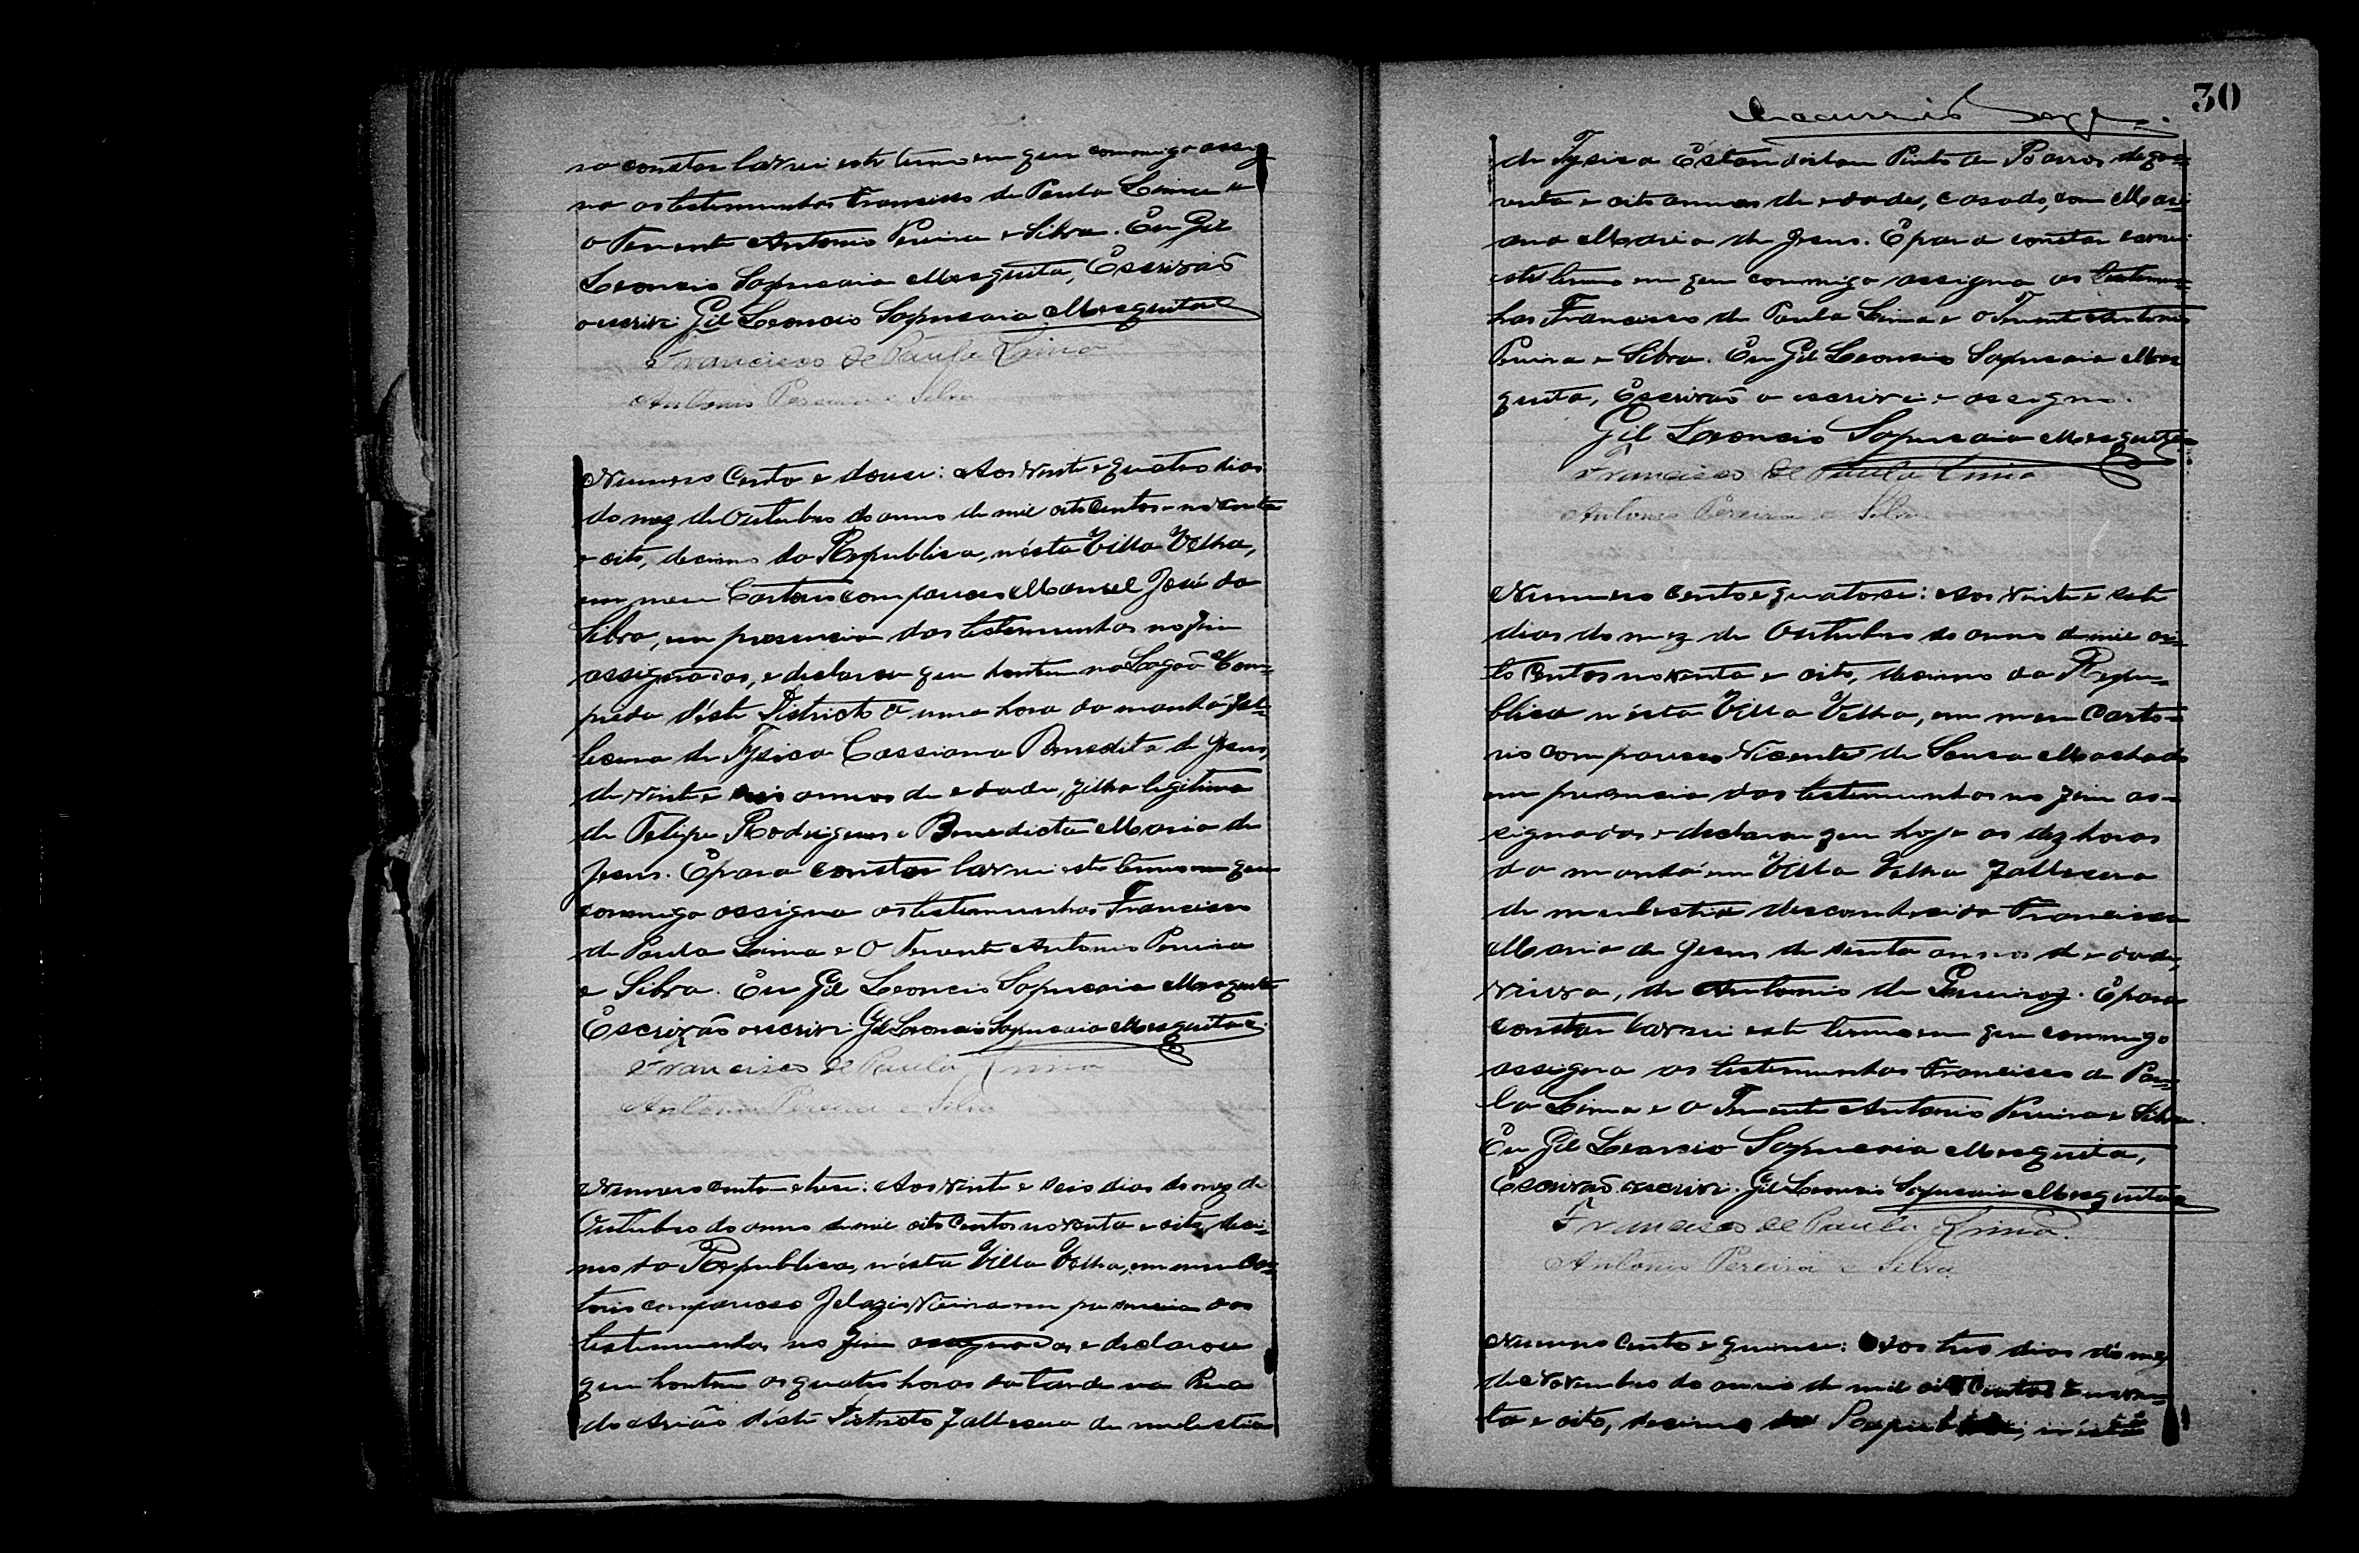 ra constar lavrei este termo em que commigo assig
na as testemunhas Francisco de Paula Lima e
o Tenente Antonio Pereira e Silva. Eu Gil
Leoncio Sapucaia Mesquita, Escrivaõ
o escrivi Gil Leoncio Sapucaia Mesquita
Francisco de Paula Lima
Antonio Pereira e Silva
Numero Cento e douse: Aos vinte e quatro dias
do mez de Outubro do anno de mil oito centos e noventa
e oito, decimo da Republica, nésta Villa Velha,
em meu Cartorio compareceo Manoel José da
Silva, em presencia das testemunhas no fim
assignadas, e declarou que hontem na Lagoa Com-
prida déste Districto á uma hora da manhã fal-
leceu de Tysica Cassiana Benedita de Jesus,
de vinte e seis annos de edade, filha legitima
de Felipe Rodrigues e Benedicta Maria de
Jesus. E para constar lavrei este termo em que
commigo assigna as testemunhas Francisco
de Paula Lima e O Tenente Antonio Pereira
e Silva. Eu Gil Leoncio Sapucaia Mesquita
Escrivão o escrivi Gil Leoncio Sapucaia Mesquita
Francisco de Paula Lima
Antonio Pereira e Silva
Numero cento e trese: Aos vinte e seis dias do mez de
Outubro do anno de mil oito centos noventa e oito, deci-
mo da Republica, nésta Villa Velha, em meu Car-
torio compareceo Vieira em presencia das
testemunhas no fim assignadas e declarou
que hontem as quatro horas da tarde na
do déste Districto falleceu de molestia
30
de Tysica Pinto de Barros de qua-
renta e oito annos de edade, casado, com Mari-
ana Maria de Jesus. E para constar lavrei
este termo em que commigo assigna as testemu-
has Francisco de Paula Lima e o Tenente Antonio
Pereira e Silva. Eu Gil Leoncio Sapucaia Mes
quita, Escrivaõ o escrivi e assigno.
Gil Leoncio Sapucaia Mesquita
Francisco de Paula Lima
Antonio Pereira e Silva
Numero cento e quatorse: Aos vinte e sete
dias do mez de Outubro do anno de mil oi-
to centos noventa e oito, decimo da Repu-
blica nésta Villa Velha, em meu Carto-
rio compareceo Vicente de Sousa Machado
em presencia das testemunhas no fim as-
signadas e declarou que hoje as dez horas
da manhã em Villa Velha falleceu
de molestia desconhecida Francisca
Maria de Jesus de annos de edade,
viuva, de Antonio de Queiroz. E para
constar lavrei este termo em que commigo
assigna as testemunhas Francisco de Pau-
la Lima e O Tenente Antonio Pereira e Silva.
Eu Gil Leoncio Sapucaia Mesquita,
Escrivaõ escrivi. Gil Leoncio Sapucaia Mesquita
Francisco de Paula Lima.
Antonio Pereira e Silva
Numero Cento e quinse: Aos tres dias do mez
de Novembro do anno de mil oito centos e noven-
ta e oito, decimo da Republica, nésta